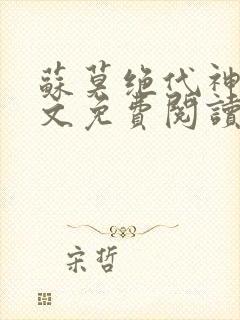 蘇莫绝代神
文免費閱讀
宋哲